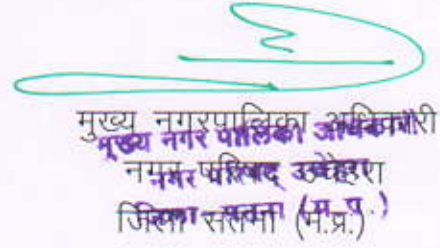 मुख्य नगरपालिका अधिकारी
मुख्य नगर पालिका अधिकारी
नगर परिषद् उचेहरा
नगर परिषद् उचेहरा
जिला सतना (म.प्र.)
जिला सतना (म.प्र.)